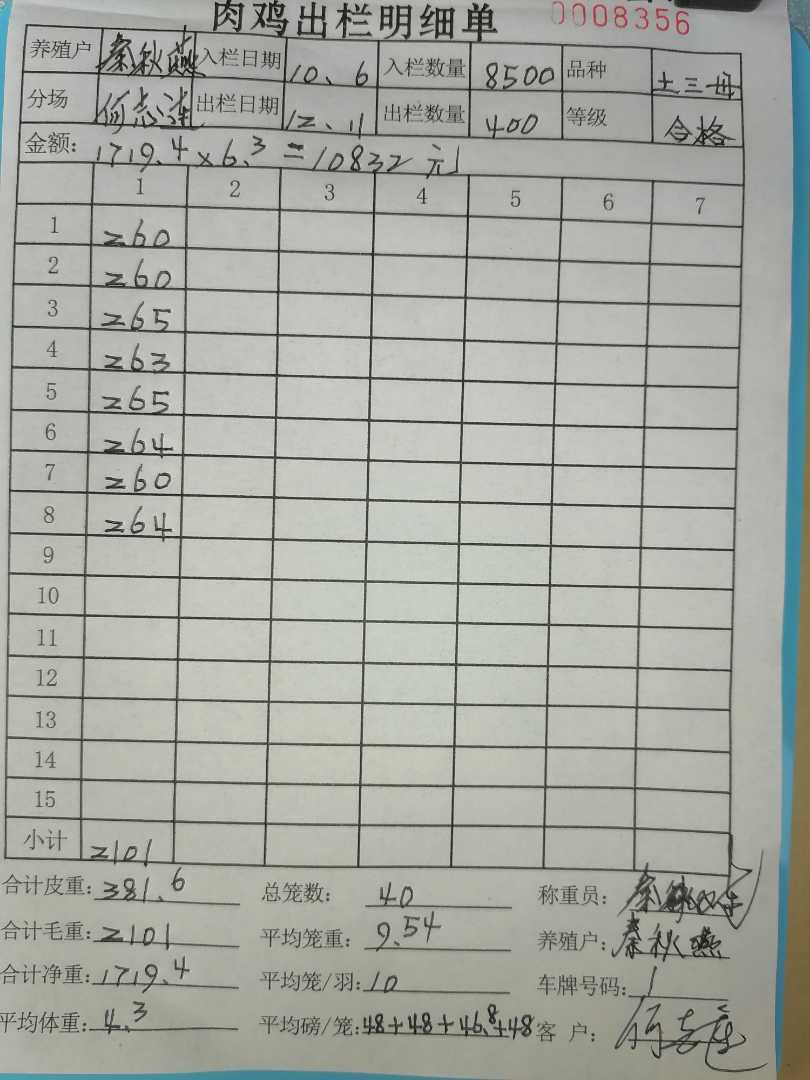 肉鸡出栏明细单 0008356
养殖户 秦秋燕 入栏日期 10、6 入栏数量 8500 品种 土三母
分场 何志连 出栏日期 12、11 出栏数量 400 等级 合格
金额: 1719.4×6.3=10832元
1 2 3 4 5 6 7
1 260
2 260
3 265
4 263
5 265
6 264
7 260
8 264
9
10
11
12
13
14
15
小计 2101
合计皮重: 381.6 总笼数: 40 称重员: 秦
合计毛重: 2101 平均笼重: 9.54 养殖户: 秦秋燕
合计净重: 1719.4 平均笼/羽: 10 车牌号码: 1
平均体重: 4.3 平均磅/笼: 48+48+46.8+48 客 户: